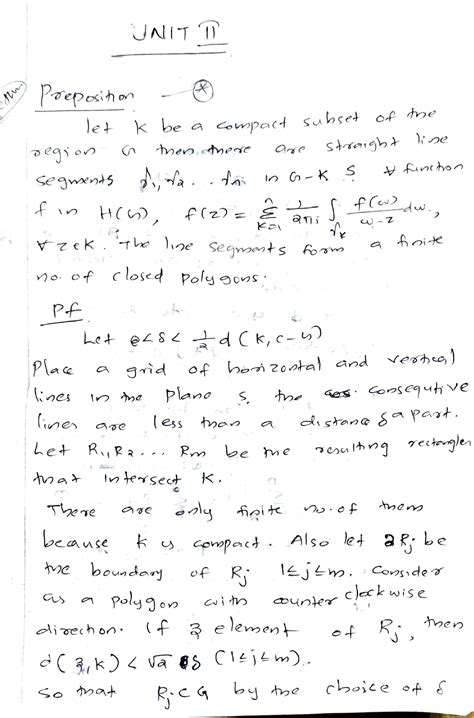 UNIT II
Preposition — *
let K be a compact subset of the
region G then there are straight line
segments γ1, γ2 ... γn in G-K S ∀ function
f in H(G), f(z) = Σ_{k=1}^{n} 1/2πi ∫_{γk} f(w)/w-z dw,
∀ z∈K. The line segments form a finite
no. of closed polygons.
Pf
Let 0<δ< 1/2 d(K, C-G)
Place a grid of horizontal and vertical
lines in the plane S the consequtive
lines are less than a distance δ apart.
Let R1, R2 ... Rm be the resulting rectangles
that intersect K.
There are only finite no. of them
because K is compact. Also let ∂Rj be
the boundary of Rj 1≤j≤m. Consider
as a polygon with counter clockwise
direction. If z element of Rj, then
d(z, K) < √2 δ (1≤j≤m).
so that Rj⊂G by the choice of δ